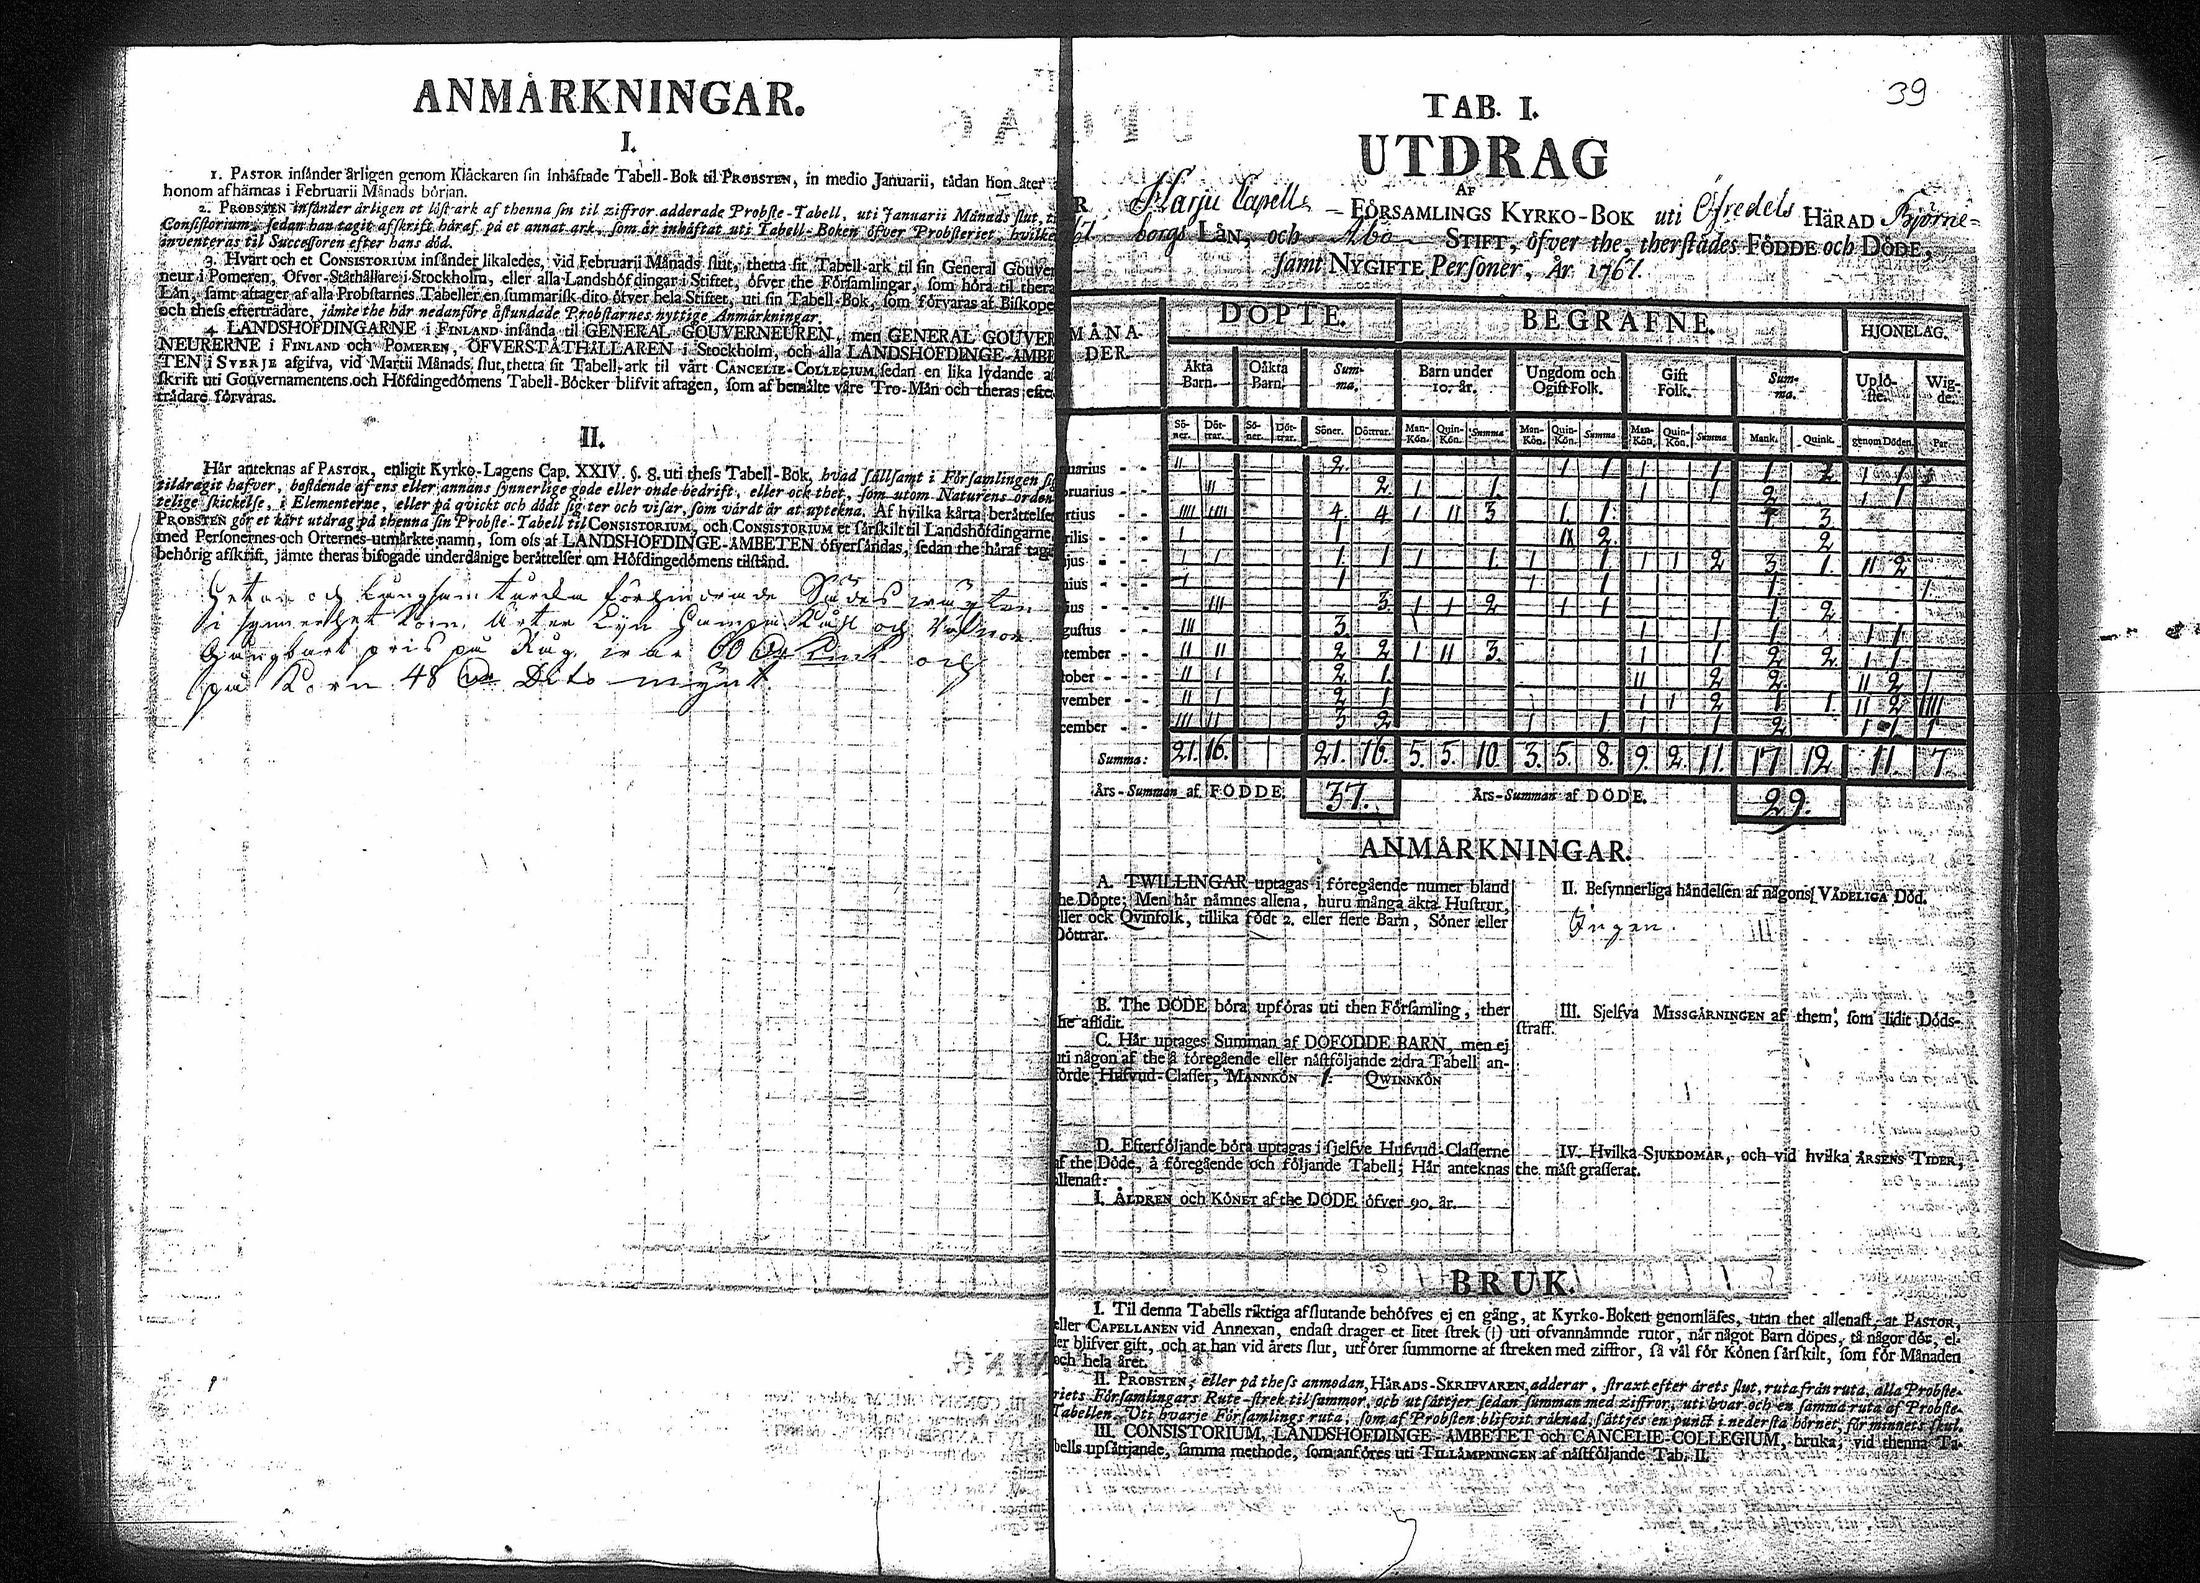 ANMÄRKNINGAR.
I.
1. PASTOR insänder årligen genom Klåckaren sin inhäftade Tabell-Bok til PROBSTEN, in medio Januarii, tådan hon åter
honom afhämtas i Februarii Månads början.
2. PROBSTEN insänder årligen et löst ark af thenna sin til ziffror adderade Probste-Tabell, uti Januarii Månads slut, til
Consistorium; sedan han tagit afskrift häraf på et annat ark, som är inhäftat uti Tabell-Boken öfver Probsteriet, hvilke
inventeras til Successoren efter hans död.
3. Hvart och et CONSISTORIUM insänder likaledes, vid Februarii Månads slut, thetta sit Tabell-ark til sin General Gouver
neur i Pomeren, Öfver-Ståthållare i Stockholm, eller alla Landshöfdingar i Stiftet, öfver the Församlingar, som höra til thera
Län, samt aftager af alla Probstarnes Tabeller en summarisk dito öfver hela Stiftet, uti sin Tabell-Bok, som förvaras af Biskope
och thess efterträdare, jämte the här nedanföre åstundade Probstarnes nyttige Anmärkningar.
4. LANDSHÖFDINGARNE i FINLAND insända til GENERAL GOUVERNEUREN, men GENERAL GOUVER
NEURERNE i FINLAND och POMEREN, ÖFVERSTÅTHÅLLAREN i Stockholm, och alla LANDSHÖFDINGE-ÄMBE
TEN i SVERJE afgifva, vid Martii Månads slut, thetta sit Tabell-ark til vårt CANCELIE-COLLEGIUM, sedan en lika lydande af
skrift uti Gouvernamentens och Höfdingedömens Tabell-Böcker blifvit aftagen, som af bemälte våre Tro-Män och theras efte
trädare förvaras.
II.
Här anteknas af PASTOR, enligit Kyrko-Lagens Cap. XXIV. §. 8. uti thess Tabell-Bok, hvad sällsamt i Församlingen sig
tildragit hafver, bestående af ens eller annans synnerlige gode eller onde bedrift, eller ock thet, som utom Naturens orden
telige skickelse, i Elementerne, eller på qvickt och dödt sig ter och visar, som värdt är at uptekna. Af hvilka korta berättelser
PROBSTEN gör et kårt utdrag på thenna sin Probste-Tabell til CONSISTORIUM, och CONSISTORIUM et särskilt til Landshöfdingarne,
med Personernes och Orternes utmärkte namn, som oss af LANDSHÖFDINGE-ÄMBETEN öfversändas, sedan the häraf tagit
behörig afskrift, jämte theras bifogade underdånige berättelser om Höfdingedömens tilstånd.
och långsam förhindrade Sädes wäxten
i synnerhet Korn, Ärter Lin Hampa Kåhl och
Gångbart pris på Råg war 60 och
på Korn 48 Dito mÿnt.
39
TAB. I.
UTDRAG
AF
Harju Capells FÖRSAMLINGS KYRKO-BOK uti Öfredels HÄRAD Björne=
borgs LÄN, och Åbo STIFT, öfver the, therstädes FÖDDE och DÖDE,
samt NYGIFTE Personer, År 1767.
MÅNA-
DER.
DÖPTE. BEGRAFNE. HJONELAG.
Äkta Barn. Oäkta Barn. Summa. Barn under 10. år. Ungdom och Ogift Folk. Gift Folk. Summa. Uplöste. Wigde.
Söner. Döttrar. Söner. Döttrar. Söner. Döttrar. Man-Kön. Quin-Kön. Summa Man-Kön. Quin-Kön. Summa Man-Kön. Quin-Kön. Summa Mank. Quink. genom Döden. Par.
uarius - - II 2. 1 1 1 1 2 1 1 1
bruarius - - II 2. 1 1. 1 1 2 1 1
rtius - - IIII IIII 4. 4 1 II 3 1. 1. 1 3.
rilis - - 1 1 II 2. 2
jus - - 1 1 1. 1 1 1. 1 1. 1 1 2 3. 1. II 2
nius - - 1 1 1 1 1. 1.
ius - - III 3. 1 1 2 1 1 1 2
gustus - - III 3. 1 1 1 1 1
tember - - II II 2 2 1 II 3. 1 1 2 2 1 1
tober - - II 1 2 1. II 2 2. II 2 1
vember - - II 1 2 1 1 1 2 1 1. II 2 IIII
cember - - III II 3 2 1 1 1 1 2 1 1 1
Summa: 21. 16. 21. 16. 5. 5. 10. 3. 5. 8. 9. 2. 11. 17 12 11. 7.
Års-Summan af FÖDDE. 37. Års-Summan af DÖDE. 29.
ANMÄRKNINGAR.
A. TWILLINGAR uptagas i föregående numer bland
he Döpte; Men här nämnes allena, huru många äkta Hustrur,
ller ock Qvinfolk, tillika födt 2. eller flere Barn, Söner eller
Döttrar.
B. The DÖDE böra upföras uti then Församling, ther
he aflidit.
C. Här uptages Summan af DÖFÖDDE BARN, men ej
uti någon af the å föregående eller nästföljande 2:dra Tabell an-
förde Hufvud-Classer, MANNKÖN 1. QWINNKÖN
D. Efterföljande böra uptagas i sjelfve Hufvud-Classerne
af the Döde, å föregående och följande Tabell; Här anteknas
allenast:
I. ÅLDREN och KÖNET af the DÖDE öfver 90. år.
II. Besynnerliga händelsen af någons VÅDELIGA Död.
Ingen.
III. Sjelfva MISSGÄRNINGEN af them, som lidit Döds-
straff.
IV. Hvilka SJUKDOMAR, och vid hvilka ÅRSENS TIDER,
the mäst grasserat.
BRUK.
I. Til denna Tabells riktiga afslutande behöfves ej en gång, at Kyrko-Boken genomläses, utan thet allenast, at PASTOR,
eller CAPELLANEN vid Annexan, endast drager et litet strek (I) uti ofvannämnde rutor, när något Barn döpes, tå någor dör, el-
ler blifver gift, och at han vid årets slut, utförer summorne af streken med ziffror, så väl för Könen särskilt, som för Månaden
och hela året.
II. PROBSTEN, eller på thess anmodan, HÄRADS-SKRIFVAREN, adderar, straxt efter årets slut, ruta från ruta, alla Probste-
riets Församlingars Rute-strek tilsammor, och utsättjer sedan summan med ziffror, uti hvar och en samma ruta af Probste-
Tabellen. Uti hvarje Församlings ruta, som af Probsten blifvit räknad, sättjes en punct i nedersta hörnet, för minnets skul.
III. CONSISTORIUM, LANDSHÖFDINGE-ÄMBETET och CANCELIE-COLLEGIUM, bruka, vid thenna Ta-
bells upsättjande, samma methode, som anföres uti TILLÄMPNINGEN af nästföljande Tab. II.